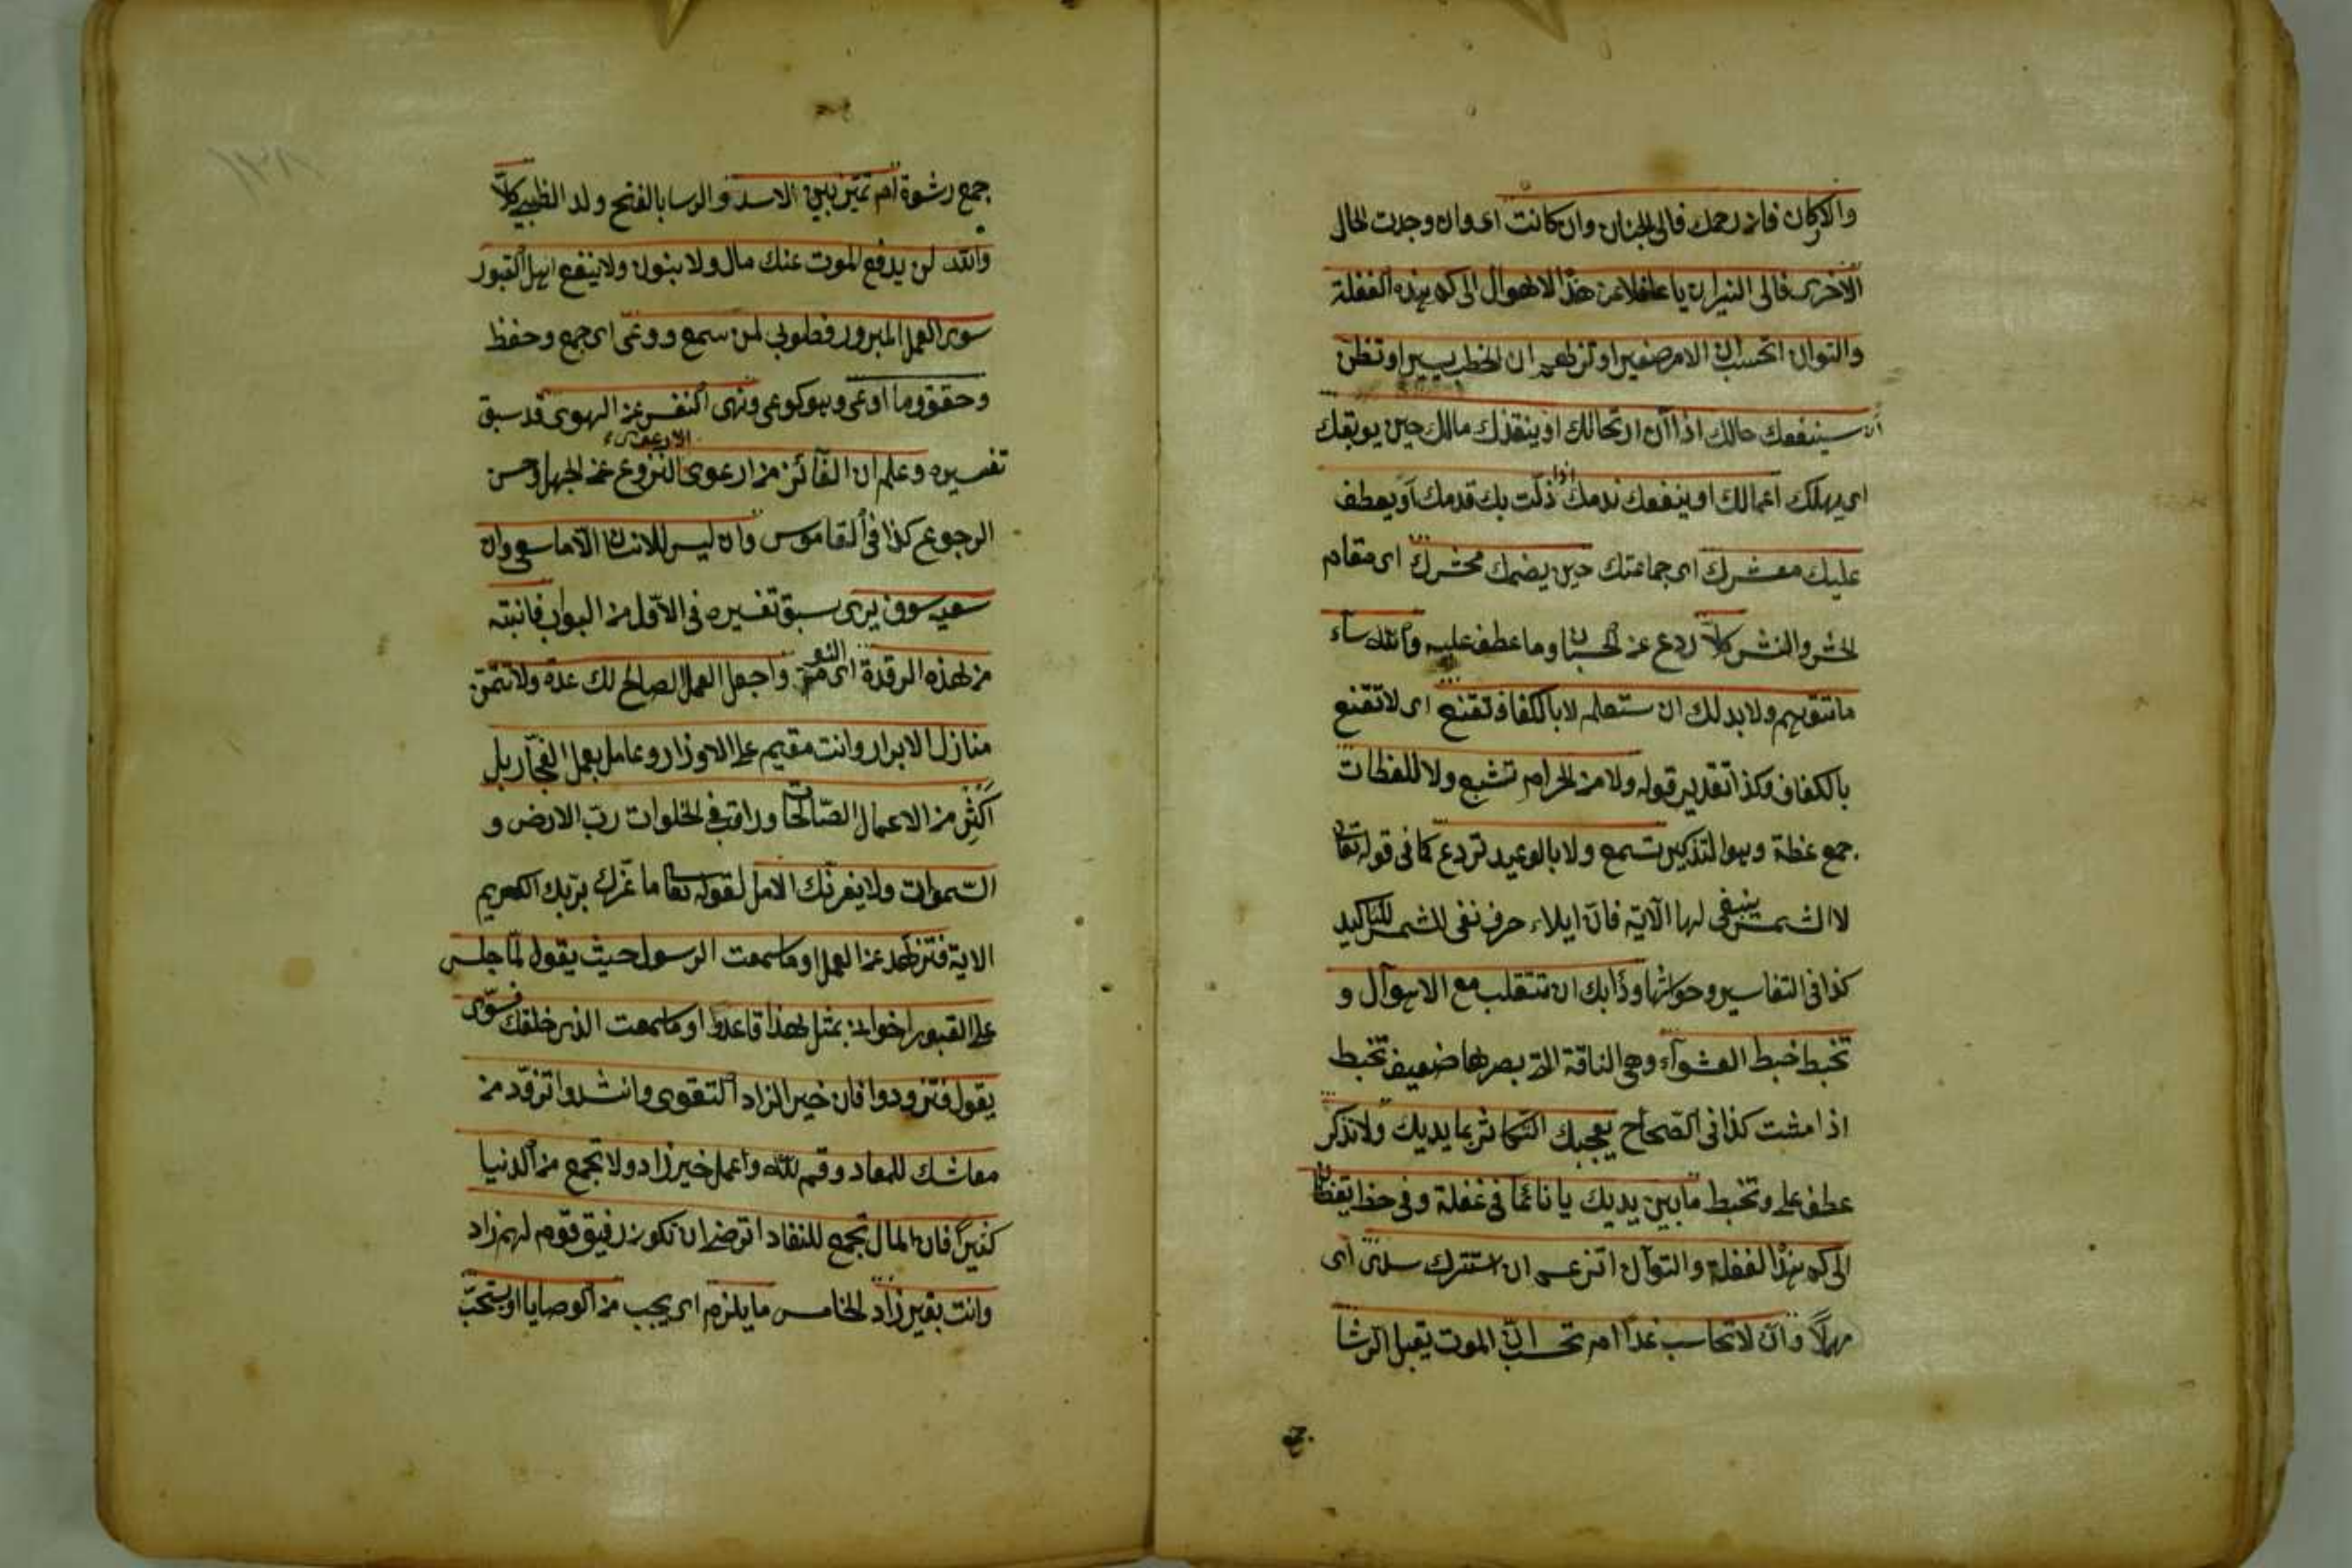 والاركان فان رحمك فالى الجنان وان كانت اى وان وجدت الحال
الاخرى فالى النيران يا غافلا عن هذا الاهوال الى كم هذه الغفلة
والتوان اتحسب ان الامر صغير او تزعم ان الخطب يسير او تظن
ان سينفعك حالك اذا آن ارتحالك او ينقذك مالك حين يوبقك
اى يهلك اعمالك او ينفعك ندمك اذا زلت بك قدمك او يعطف
عليك معشرك اى جماعتك حين يضمك محشرك اى مقام
الحشر والنشر كلا ردع عن الحسبان وما عطف عليه والله ساء
ما تتوهم ولا بد لك ان ستعلم لا بالكفاف تقنع اى لا تقنع
بالكفاف وكذا تقدير قوله ولا من الحرام تشبع ولا للعظات
جمع عظة وهو التذكير تسمع ولا بالوعيد تردع كما فى قوله تعالى
لا الشمس ينبغى لها الآية فان ايلاء حرف نفى للشمس للتاكيد
كذا فى التفاسير وحواشها ودأبك ان تتقلب مع الاهوآل و
تخبط خبط العشوآء وهى الناقة التى بصرها ضعيف تخبط
اذا مشت كذا فى الصحاح يعجبك التكاثر بما يديك ولا تذكر
عطف على وتخبط ما بين يديك يا نائما فى غفلة وفى خطا يقظان
الى كم هذا الغفلة والتوآن اتزعم ان ستترك سدى اى
مهلا وان لا تحاسب غدا ام تحسب ان الموت يقبل الرشا
جمع رشوة ام تميز بين الاسد والرسا بالفتح ولد الظبى كلا
والله لن يدفع الموت عنك مال ولا بنون ولا ينفع اهل القبور
سوى العمل المبرور فطوبى لمن سمع ووعى اى جمع وحفظ
وحقق وما اوعى وهو كوعى ونهى النفس عن الهوى قد سبق
تفسيره وعلم ان الفآئز من ارعوى الارعوى النزوع عن الجهل وحسن
الرجوع كذا فى القاموس وان ليس للانسان الا ما سعى وان
سعيه سوف يرى سبق تفسيره فى الاول من البواب فانتبه
من هذه الرقدة اى النومة واجعل العمل الصالح لك عدة ولا تتمن
منازل الابرار وانت مقيم على الاوزار وعامل بعمل الفجآر بل
أكثر من الاعمال الصالحات وراقب فى الخلوات رب الارض و
السموات ولا يغرنك الامل لقوله تعالى ما غرك بربك الكريم
الاية فتزهد عن العمل او ما سمعت الرسول حيث يقول لما جلس
على القبور اخوانى بمثل هذا فاعدوا او ما سمعت الذى خلقك فسوى
يقول فتزودوا فان خير الزاد التقوى وانشدوا تزود من
معاشك للمعاد وقم لله واعمل خير زاد ولا تجمع من الدنيا
كثيرا فان المال تجمع للنفاد اترضى ان تكون رفيق قوم لهم زاد
وانت بغير زاد الخامس ما يلزم اى يجب من الوصايا او يستحب